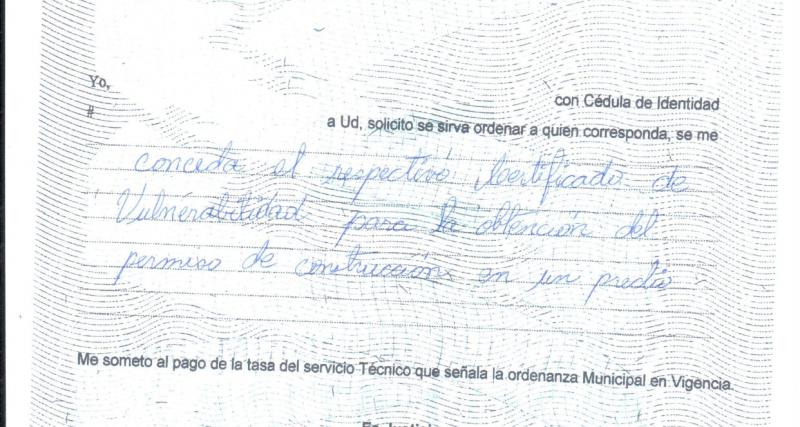 Yo,
con Cédula de Identidad
#
a Ud, solicito se sirva ordenar a quien corresponda, se me
conceda el respectivo Certificado de
Vulnerabilidad para la obtención del
permiso de construcción en un predio
Me someto al pago de la tasa del servicio Técnico que señala la ordenanza Municipal en Vigencia.